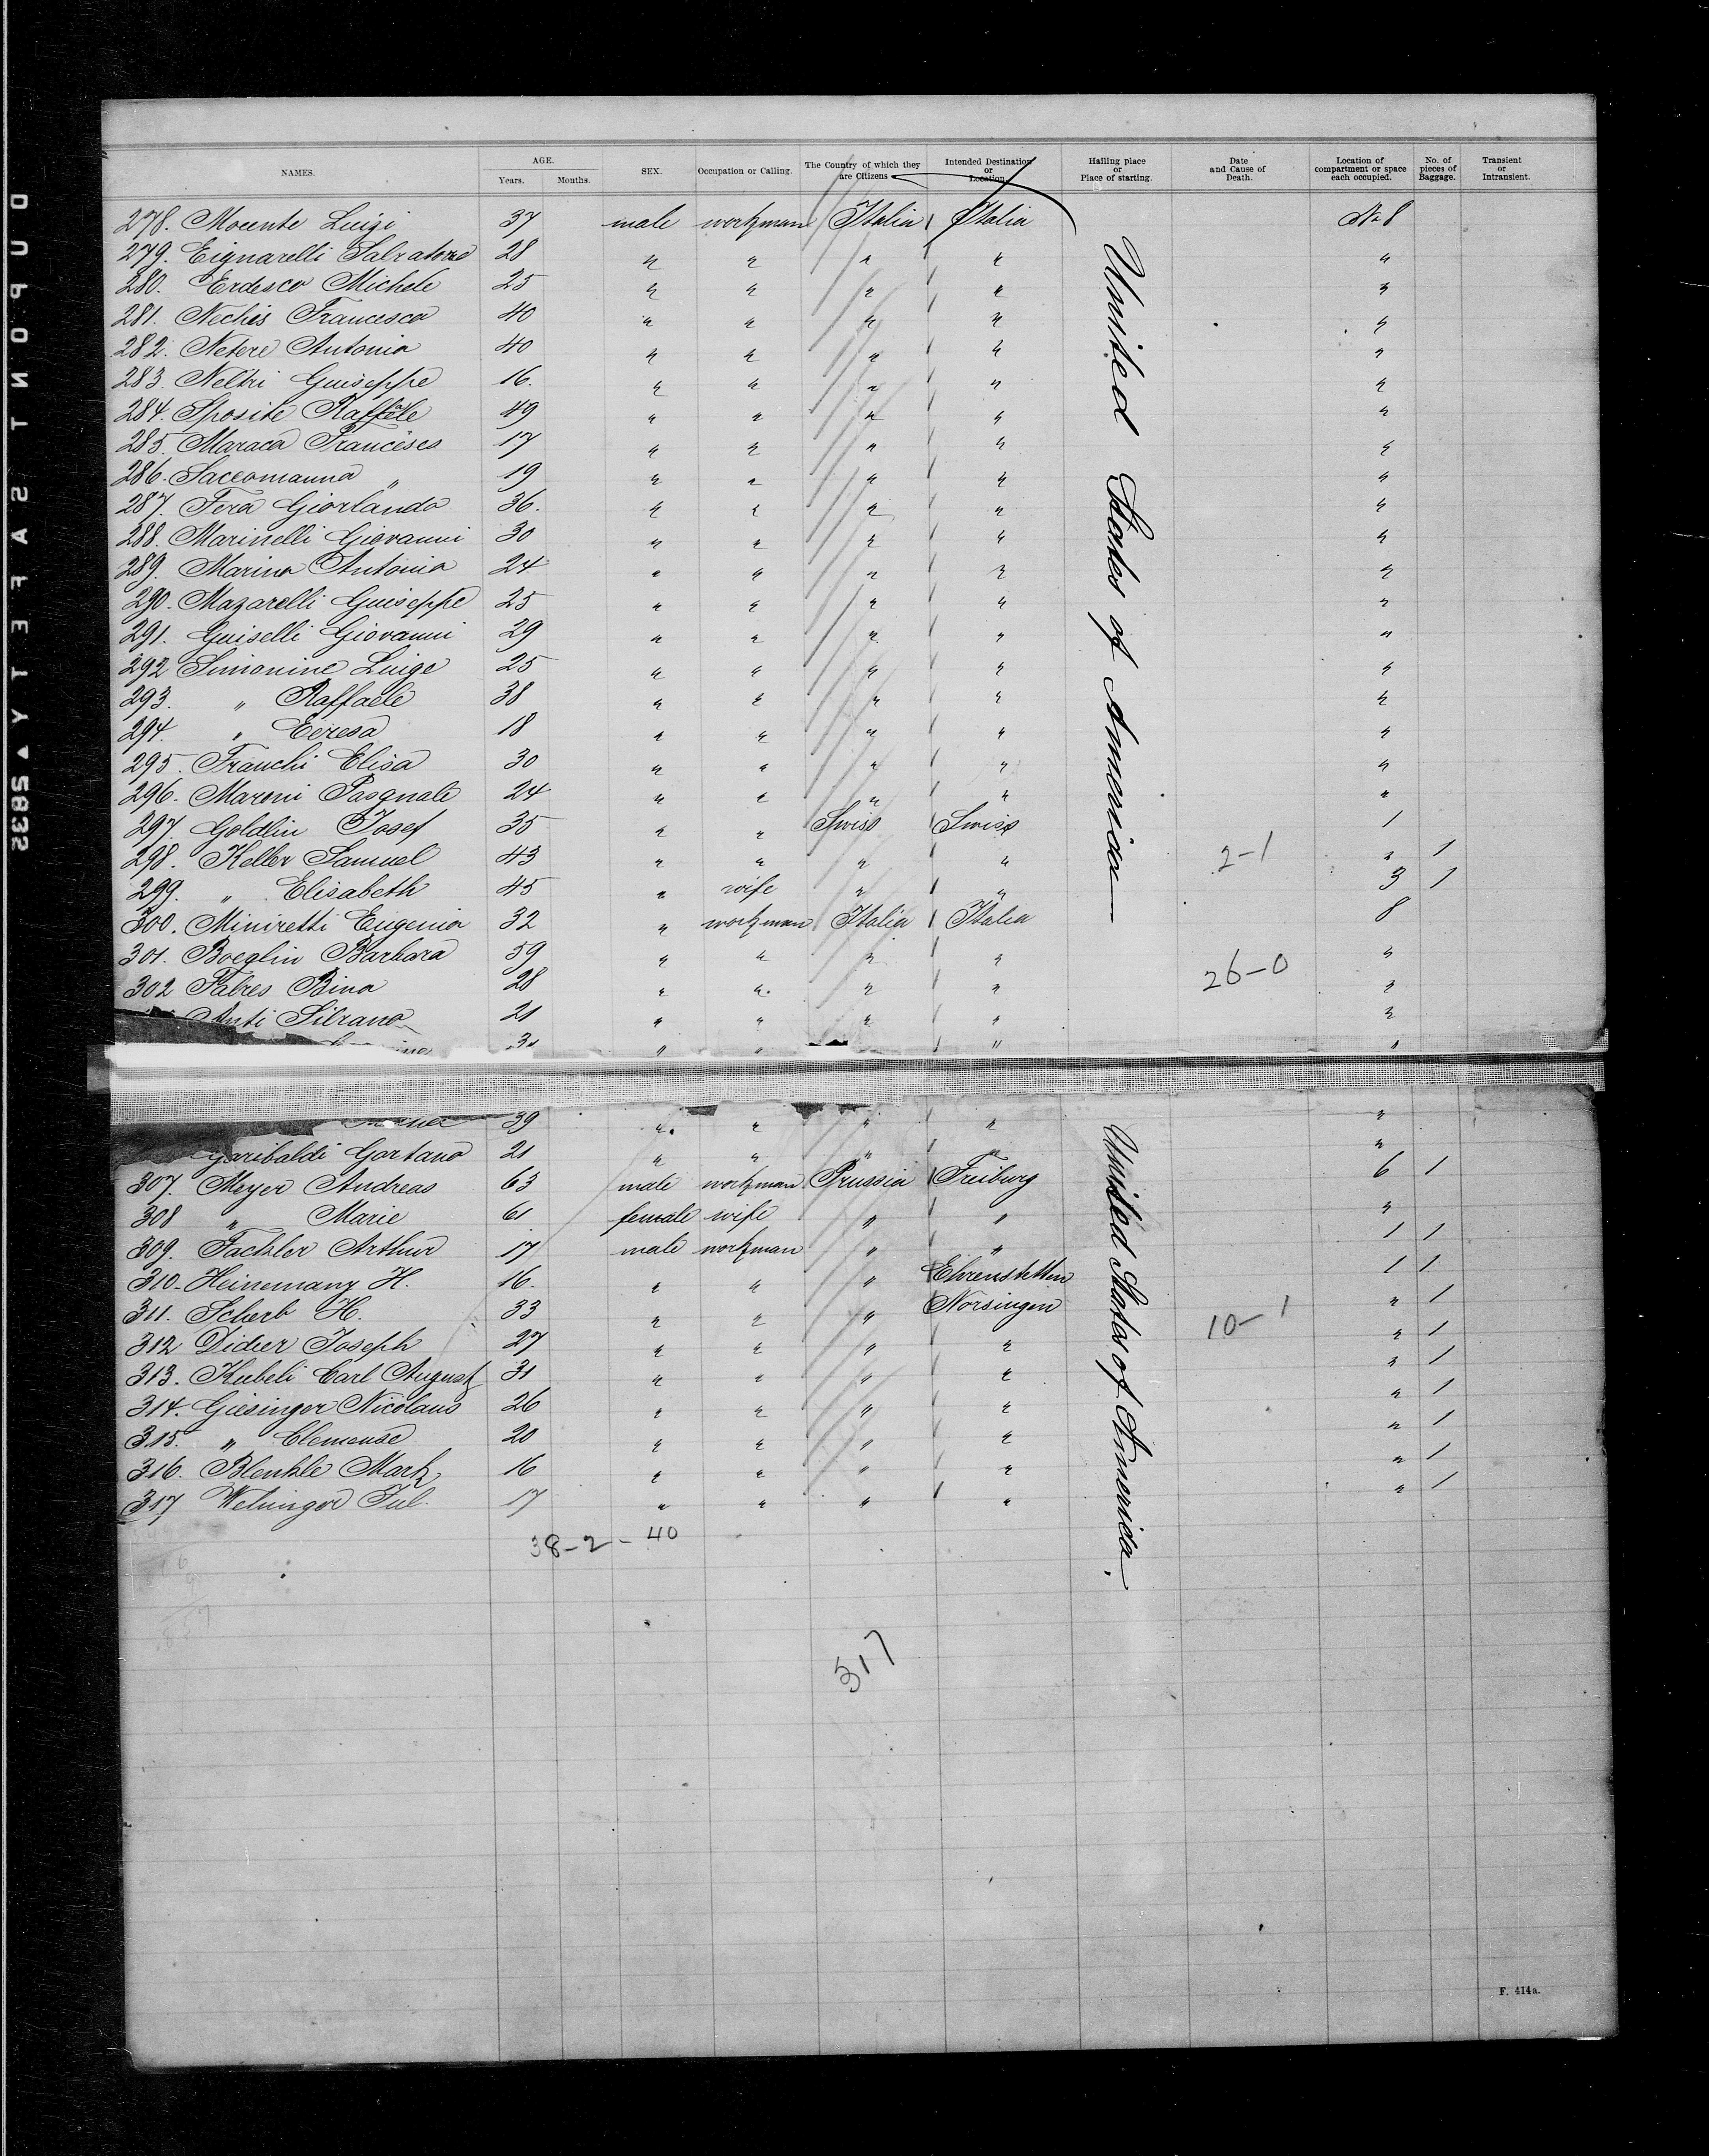 NAMES. AGE. Years. Months. SEX. Occupation or Calling. The Country of which they are Citizens Intended Destination or Location Hailing place or Place of starting. Date and Cause of Death. Location of compartment or space each occupied. No. of pieces of Baggage. Transient or Intransient.
278. Mocente Luigi 37 male workman Italia Italia No 8
279. Eignarelli Salvatore 28 " " " " "
280. Erdesco Michele 25 " " " " "
281. Nechis Francesco 40 " " " " "
282. Netere Antonia 40 " " " " "
283. Neltri Guiseppe 16. " " " " "
284. Sposite Raffaele 49 " " " " "
285. Maraca Francesco 17 " " " " "
286. Saccomanna " 19 " " " " "
287. Fera Giorlando 36. " " " " "
288. Marinelli Giovanni 30 " " " " "
289. Marina Antonia 24 " " " " "
290. Mazarelli Guiseppe 25 " " " " "
291. Guiselli Giovanni 29 " " " " "
292 Simonine Luige 25 " " " " "
293. " Raffaele 38 " " " " "
294. " Eeresa 18 " " " " "
295. Franchi Elisa 30 " " " " "
296. Maroni Pasquale 24 " " " " "
297. Goldlin Josef 35 " " Swiss Swiss 1
298. Keller Samuel 43 " " " " 2-1 " 1
299. " Elisabeth 45 " wife " " 3 1
300. Miniretti Eugenia 32 " workman Italia Italia 8
301. Boeglin Barbara 59 " " " " "
302 Fabres Bina 28 " " " " 26-0 "
Anti Silvano 21 " " " " "
" " " "
United States of America
39 " " " " "
Garibaldi Gortano 21 " " " " "
307. Meyer Andreas 63 male workman Prussia Freiburg 6 1
308 " Marie 61 female wife " " "
309. Fackler Arthur 17 male workman " " 1 1
310. Heinemany H. 16. " " " Ehrenstetten 1 1
311. Scherb H. 33 " " " Norsingen 10-1 " 1
312 Didier Joseph 27 " " " " " 1
313. Kubeli Carl August 31 " " " " " 1
314. Giesinger Nicolaus 26 " " " " " 1
315. " Clemense 20 " " " " " 1
316. Blenkle Mark 16 " " " " " 1
317 Wehinger Jul. 17 " " " " " 1
United States of America.
38-2-40
317
F. 414a.
DUPONT SAFETY 5832